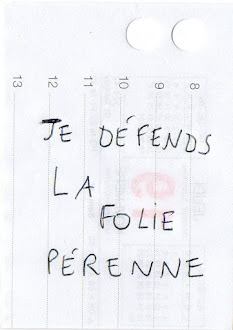 8
9
10
11
12
13
JE DÉFENDS
LA
FOLIE
PÉRENNE